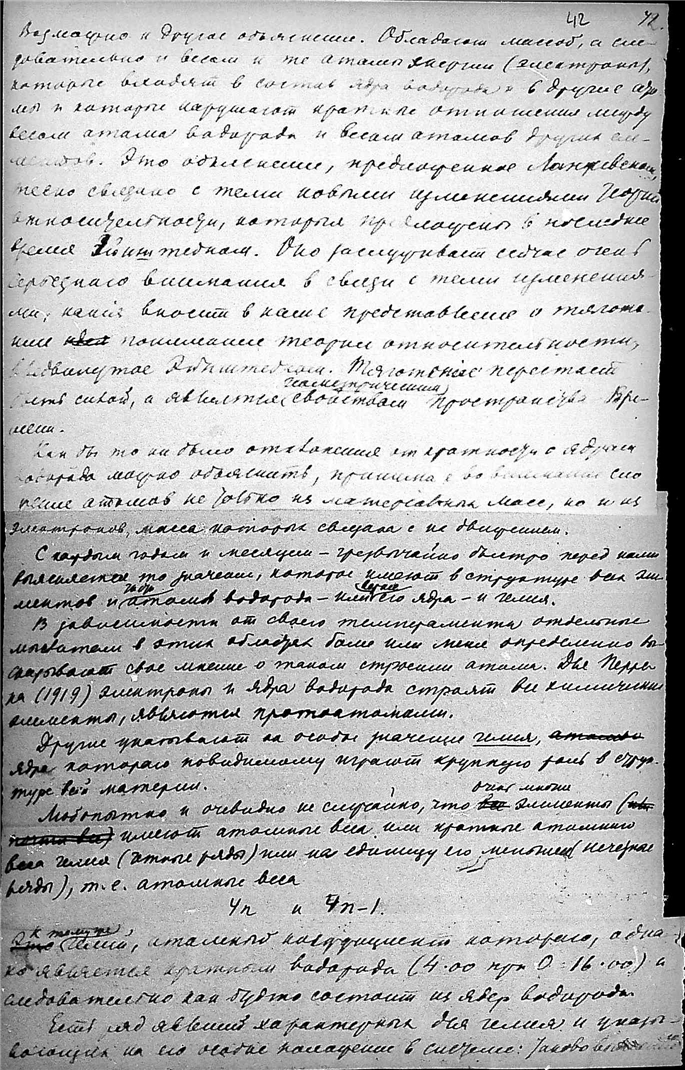 42 42.
Возможно и другое объяснение. Обладают массой, а сле-
довательно и весом и те атомы энергии (электроны),
которые входят в состав ядра водорода и в другие ато-
мы и которые нарушают кратные отношения между
весом атома водорода и весом атомов других эле-
ментов. Это объяснение, предложенное
тесно связано с теми новыми изменениями теории
относительности, которыя предложены в последнее
время Эйнштейном. Оно заслуживает сейчас очень
серьезнаго внимания в связи с теми изменения-
ми, какия вносит в наше представление о тяготе-
нии понимание теории относительности,
выдвинутое Эйнштейном. Тяготение перестает
геометрическим
быть силой, а является свойством пространства-вре-
мени.
Как бы то ни было отклонения от кратности с ядром
водорода можно объяснить, принимая во внимание сло-
жение атомов не только из материальных масс, но и из
электронов, масса которых связана с их движением.
С каждым годом и месяцем – чрезвычайно быстро перед нами
выясняется то значение, которое имеют в структуре всех эле-
ментов и атомы водорода – или его ядра – и гелия.
В зависимости от своего темперамента отдельные
мыслители в этих областях более или менее определенно вы-
сказывают свое мнение о таком строении атома. Для Перре-
на (1919) электроны и ядра водорода строят все химические
элементы, являются протоатомами.
Другие указывают на особое значение гелия, атомы
ядра котораго повидимому играют крупную роль в струк-
туре всей материи.
очень многие
Любопытно и очевидно не случайно, что все элементы
почти все) имеют атомные веса или кратные атомного
веса гелия (четные ряды) или на единицу его меньшие (нечетные
ряды), т.е. атомные веса
4n и 4n-1.
к тому же
Это гелий, атомный коэффициент которого, одна-
ко является кратным водорода (4.00 при O=16.00) и
следовательно как будто состоит из ядер водорода.
Есть ряд явлений характерных для гелия и указы-
вающих на его особое положение в системе: таково